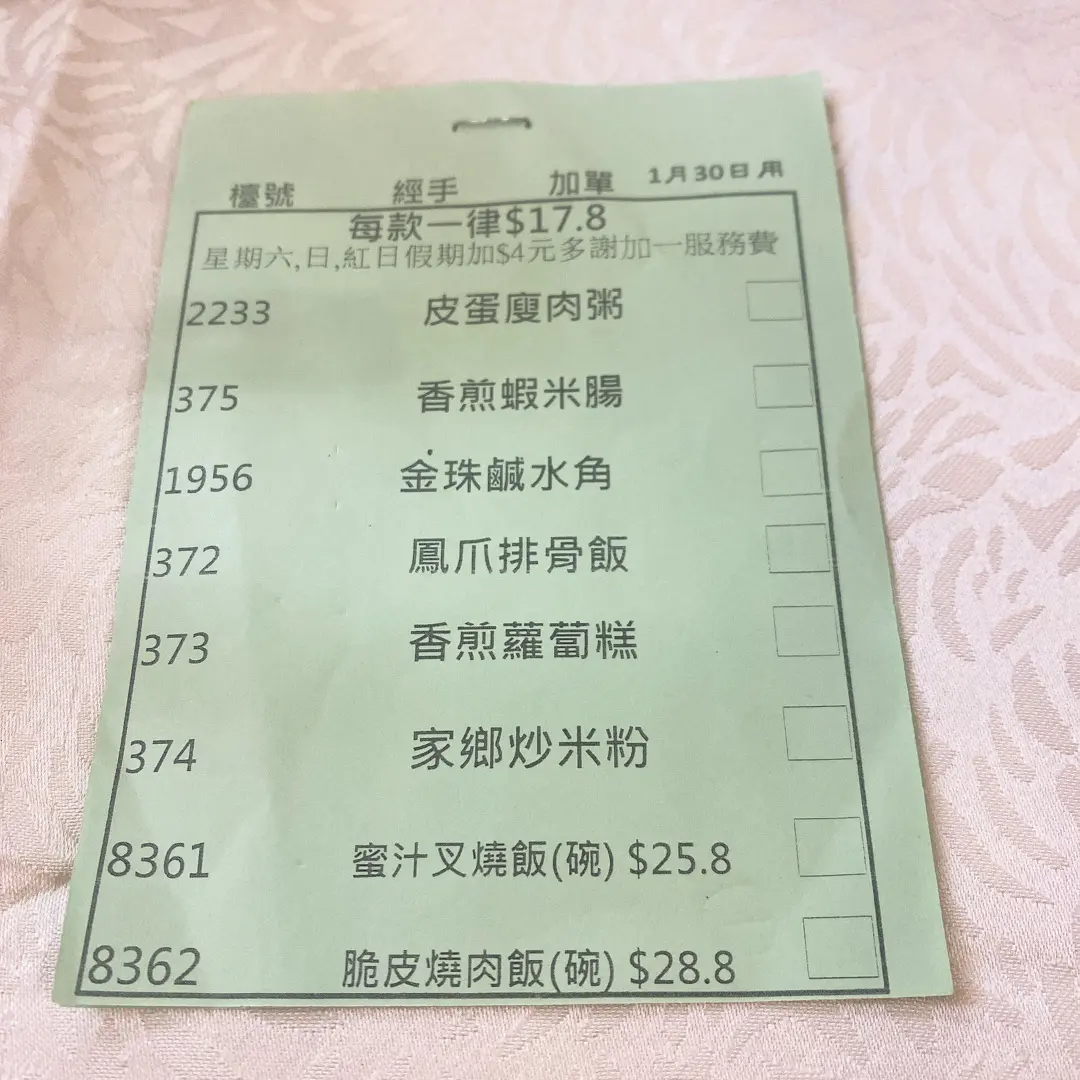 檯號 經手 加單 1月30日用
每款一律$17.8
星期六,日,紅日假期加$4元多謝加一服務費
2233 皮蛋廋肉粥
375 香煎蝦米腸
1956 金珠鹹水角
372 鳳爪排骨飯
373 香煎蘿蔔糕
374 家鄉炒米粉
8361 蜜汁叉燒飯(碗) $25.8
8362 脆皮燒肉飯(碗) $28.8